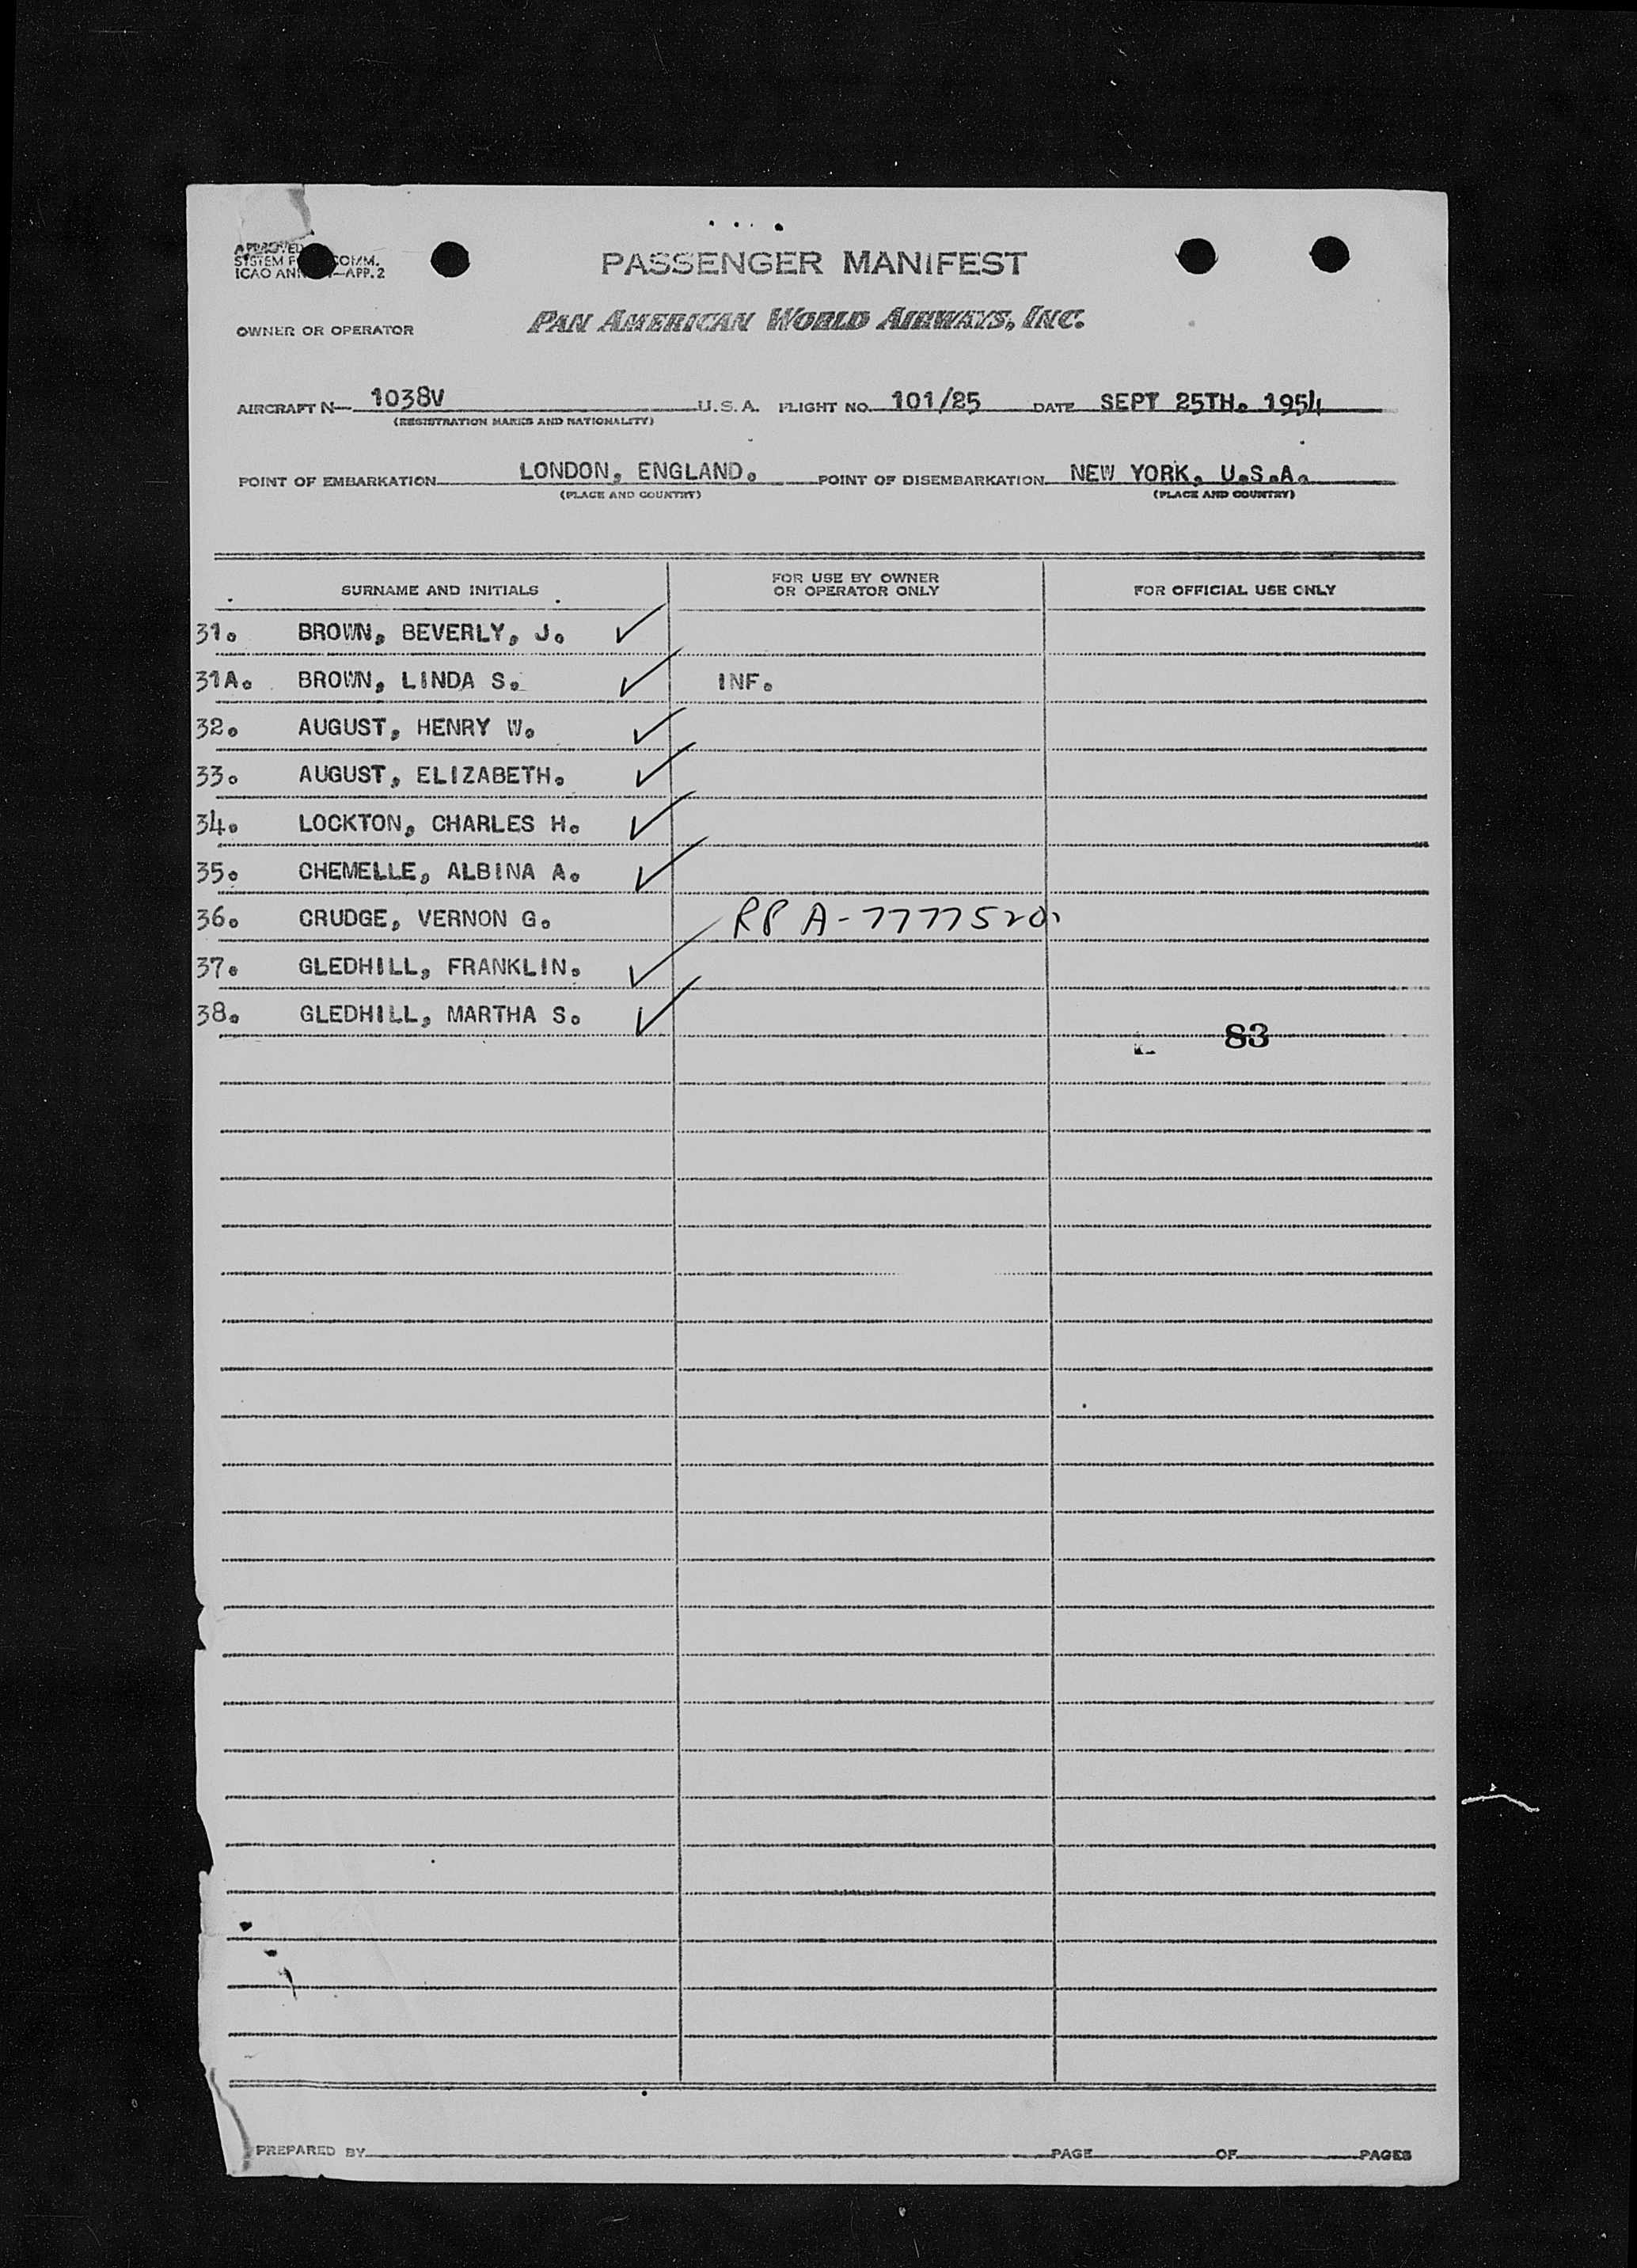 APPROVED
SYSTEM F COMM.
ICAO ANN —APP. 2
PASSENGER MANIFEST
OWNER OR OPERATOR PAN AMERICAN WORLD AIRWAYS, INC.
AIRCRAFT N— 1038V U.S.A. FLIGHT NO. 101/25 DATE SEPT 25TH. 1954
(REGISTRATION MARKS AND NATIONALITY)
POINT OF EMBARKATION LONDON, ENGLAND. POINT OF DISEMBARKATION NEW YORK, U.S.A.
(PLACE AND COUNTRY) (PLACE AND COUNTRY)
SURNAME AND INITIALS FOR USE BY OWNER OR OPERATOR ONLY FOR OFFICIAL USE ONLY
31. BROWN, BEVERLY, J. ✓
31A. BROWN, LINDA S. ✓ INF.
32. AUGUST, HENRY W. ✓
33. AUGUST, ELIZABETH. ✓
34. LOCKTON, CHARLES H. ✓
35. CHEMELLE, ALBINA A. ✓
36. CRUDGE, VERNON G. RP A-7777520
37. GLEDHILL, FRANKLIN. ✓
38. GLEDHILL, MARTHA S. ✓
83
PREPARED BY PAGE OF PAGES